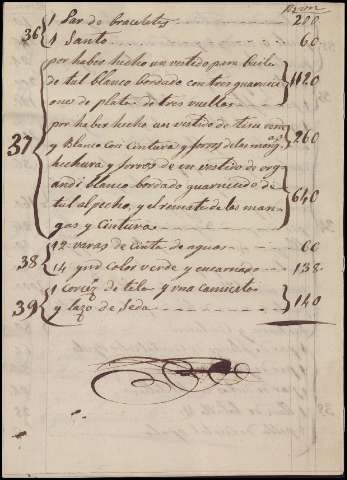 Rvon
36 1 Par de braceletes 200
1 Santo 60
37 por haber hecho un vestido para baile
de tul blanco bordado con tres guarnici
ones de plata de tres vuelos 1120
por haber hecho un vestido de tisu
y Blanco con Cintura y forros de las mang.as 260
hechura y forros de un vestido de or
gandi blanco bordado guarnecido de
tul al pecho, y el remate de las man
gas y Cintura 640
38 12 varas de cinta de aguas 60
14 ynd color verde y encarnado 138
39 1 Corsez de tela y una camiseta
y lazo de Seda 140